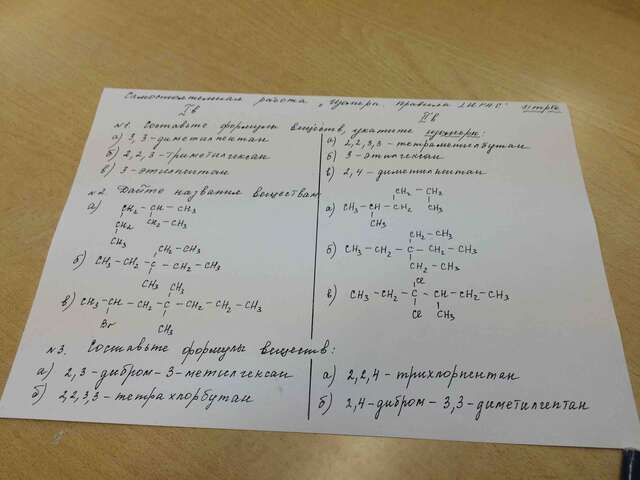 Самостоятельная работа „Изомери. правила IUPAC"
I в
II в
№1. Составьте формулы веществ, укажите изомеры:
а) 3,3-диметилпентан
б) 2,2,3-триметилгексан
в) 3-этилпентан
а) 2,2,3,3-тетраметилбутан
б) 3-этилгексан
в) 2,4-диметилпентан
№2. Дайте названия веществам
а) CH2-CH-CH3
CH2 CH2-CH3
CH3
б) CH2-CH3
CH3-CH2-C-CH2-CH3
CH2-CH3
в) CH3
CH3-CH-CH2-C-CH2-CH2-CH3
Br CH3
CH2-CH2
а) CH3-CH-CH2 CH3
CH2-CH3
б) CH3-CH2-C-CH2-CH3
CH2-CH3
Cl
в) CH3-CH2-C-CH-CH2-CH3
Cl CH3
№3. Составьте формулы веществ:
а) 2,3-дибром-3-метилгексан
б) 2,2,3,3-тетрахлорбутан
а) 2,2,4-трихлорпентан
б) 2,4-дибром-3,3-диметилгептан